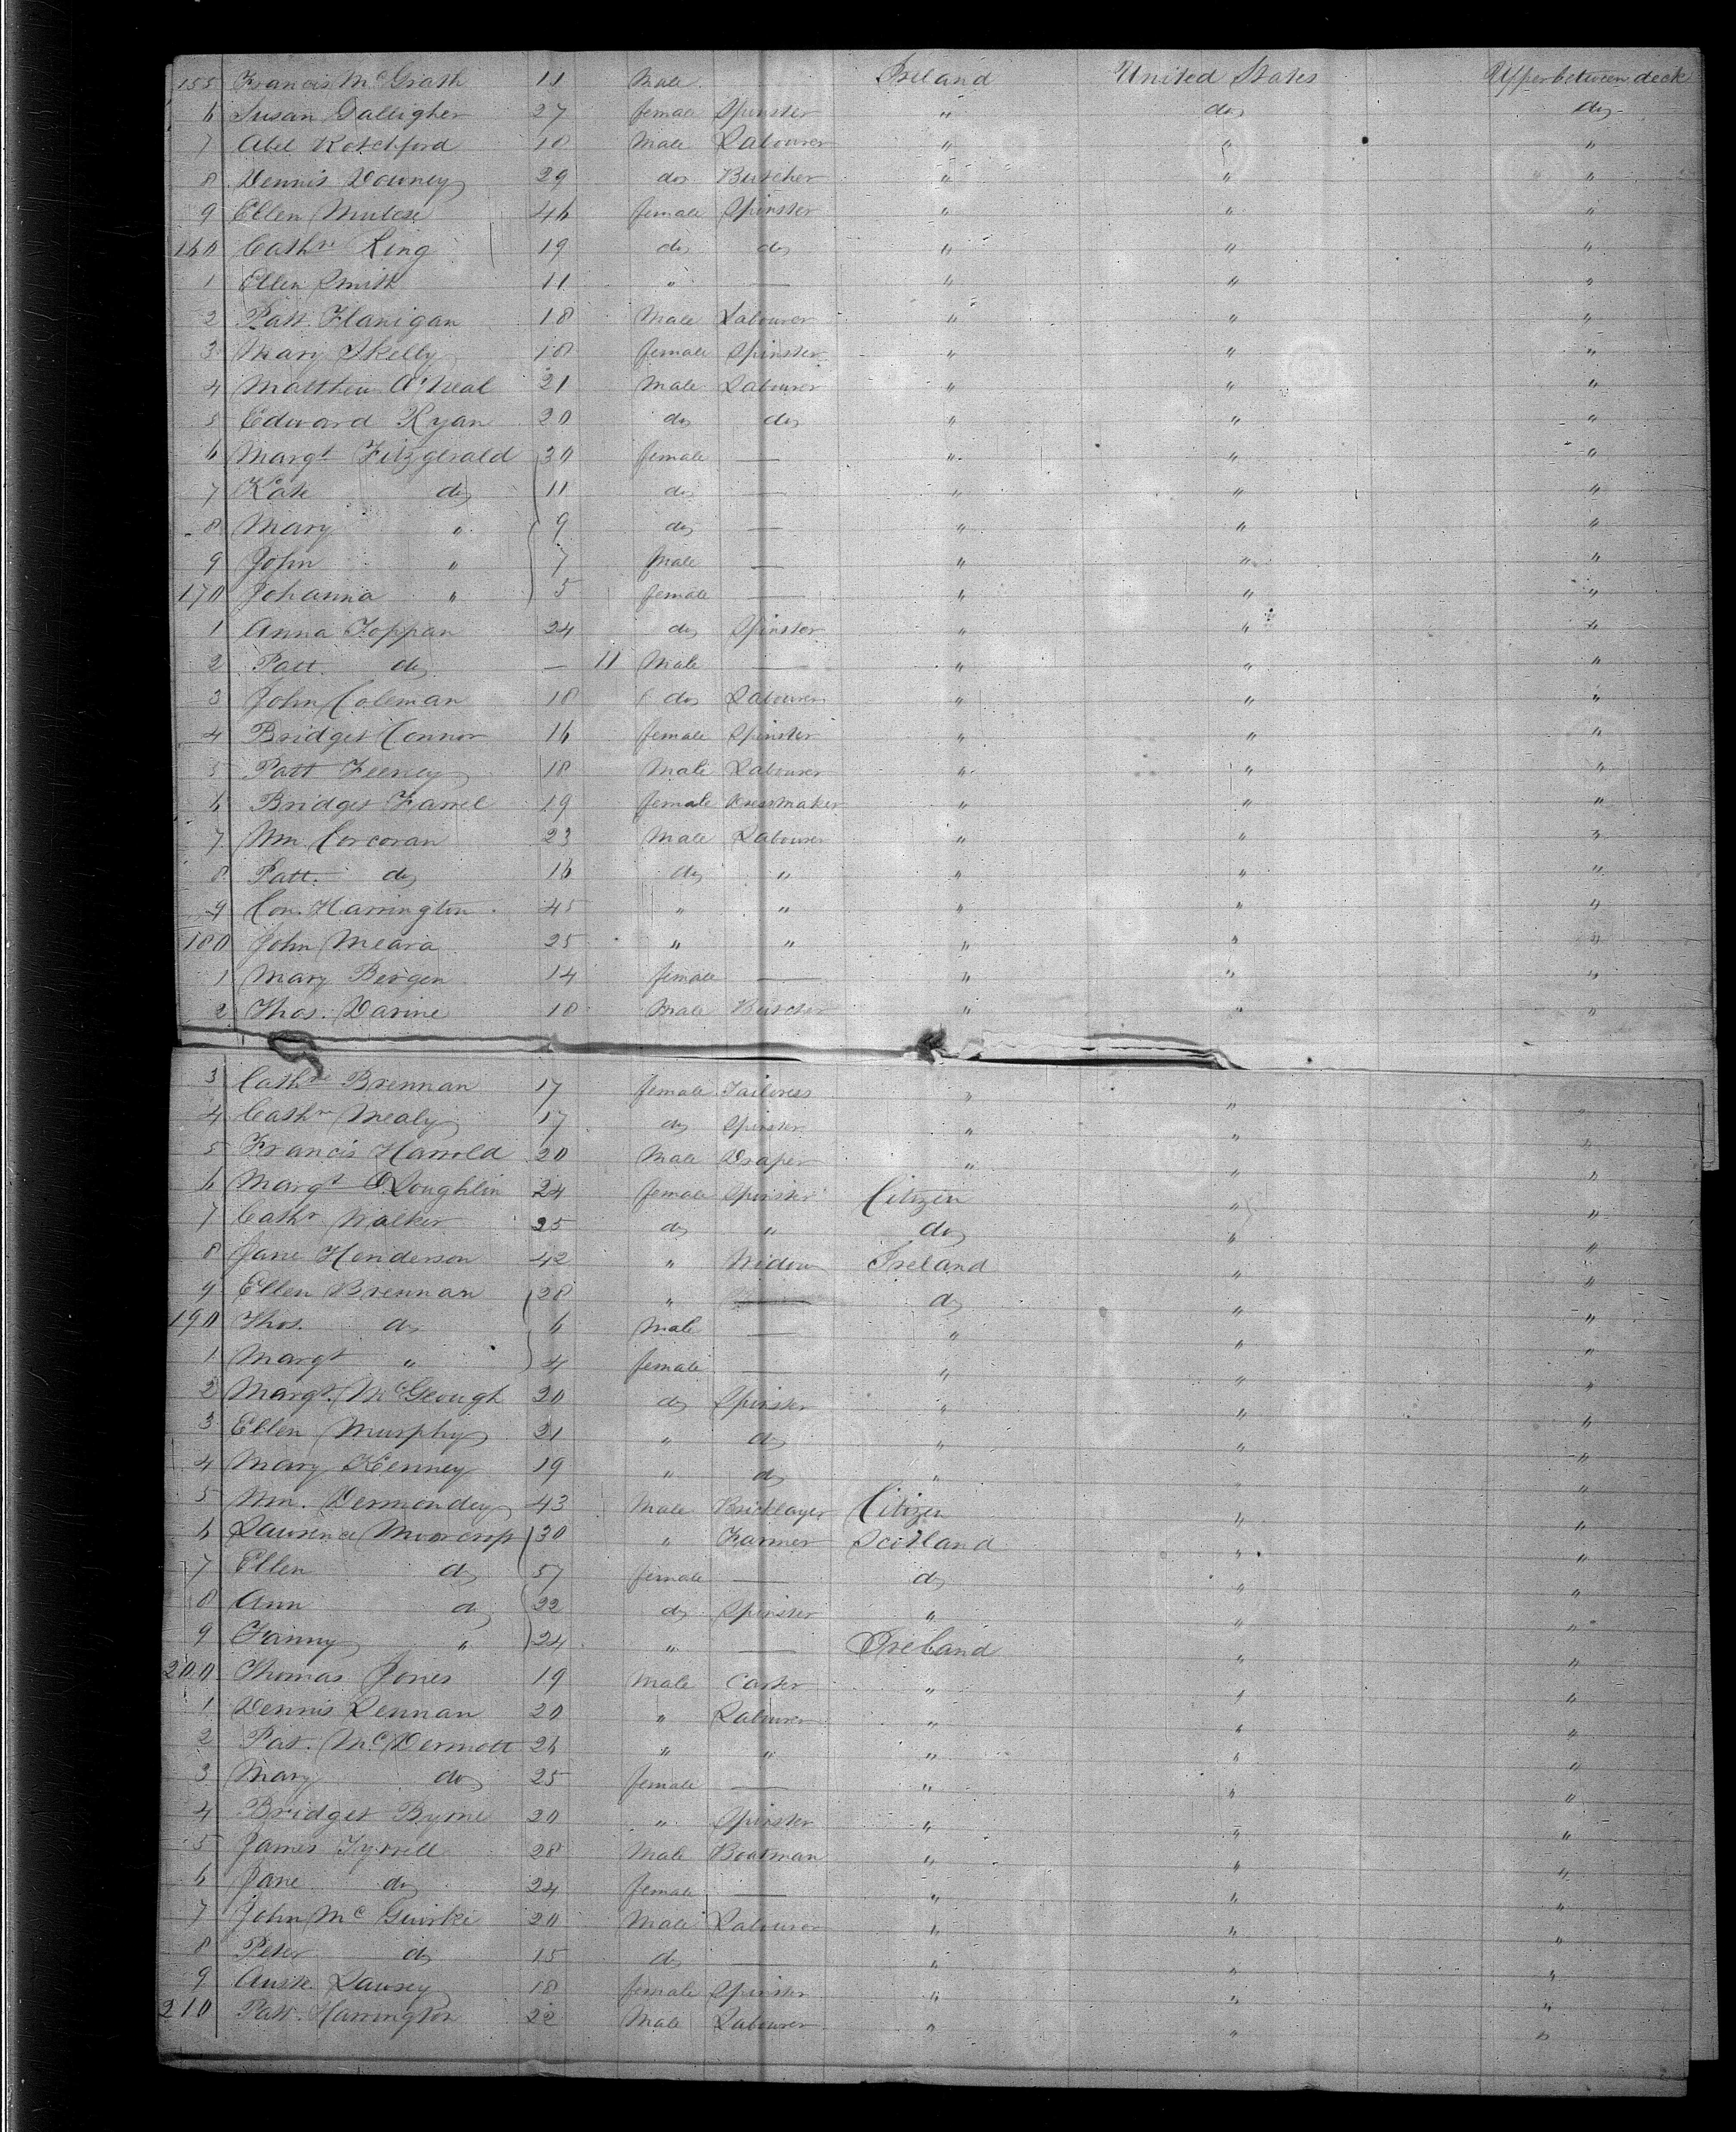 155 Francis McGrath 11 Male Ireland United States Upper between deck
6 Susan Galligher 27 female Spinster " do do
7 Abel Rotchford 18 Male Labourer " " "
8 Dennis Downey 29 do Butcher " " "
9 Ellen 46 female Spinster " " "
160 Cathne King 19 do do " " "
1 Ellen Smith 11 " — " " "
2 Patt. Flanigan 18 Male Labourer " " "
3 Mary Skelly 18 female Spinster " " "
4 Matthew O'Neal 21 Male Labourer " " "
5 Edward Ryan 20 do do " " "
6 Margt Fitzgerald 30 female — " " "
7 Kate do 11 do — " " "
8 Mary " 9 do — " " "
9 John " 7 male — " " "
170 Johanna " 5 female — " " "
1 Anna Toppan 24 do Spinster " " "
2 Patt do — 11 Male — " " "
3 John Coleman 18 do Labourer " " "
4 Bridget Connor 16 female Spinster " " "
5 Patt Feeney 18 Male Labourer " " "
6 Bridget Farrel 19 female Dressmaker " " "
7 Wm. Corcoran 23 Male Labourer " " "
8 Patt. do 16 do " " " "
9 Con. Harrington 45 " " " " "
180 John Meara 25 " " " " "
1 Mary Bergen 14 female — " " "
2 Thos. Darine 18 Male Butcher " " "
3 Cathne Brennan 17 female Tailoress " " "
4 Cathn Mealy 17 do Spinster " " "
5 Francis Harrold 20 Male Draper " " "
6 Margt O'Loughlin 24 female Spinster Citizen " "
7 Cathr Walker 25 do " do " "
8 Jane Henderson 42 " Widow Ireland " "
9 Ellen Brennan 28 " — do " "
190 Thos. do 6 Male — " " "
1 Margt " 4 female — " " "
2 Margt. McGeough 20 do Spinster " " "
3 Ellen Murphy 21 " do " " "
4 Mary Kenney 19 " do " " "
5 Wm. Dermondey 43 Male Bricklayer Citizen " "
6 Lawrence Moorcrop 30 " Farmer Scotland " "
7 Ellen do 57 female — do " "
8 Ann do 22 do Spinster " " "
9 Fanny " 24 " — Ireland " "
200 Thomas Jones 19 Male Carter " " "
1 Dennis Lennan 20 " Labourer " " "
2 Pat. McDermott 26 " " " " "
3 Mary do 25 female — " " "
4 Bridget Byrne 20 " Spinster " " "
5 James Tyrrell 28 Male Boatman " " "
6 Jane do 24 female — " " "
7 John Mc Guirke 20 Male Labourer " " "
8 Peter do 15 do — " " "
9 18 female Spinster " " "
210 Patt. Harrington 22 Male Labourer " " "